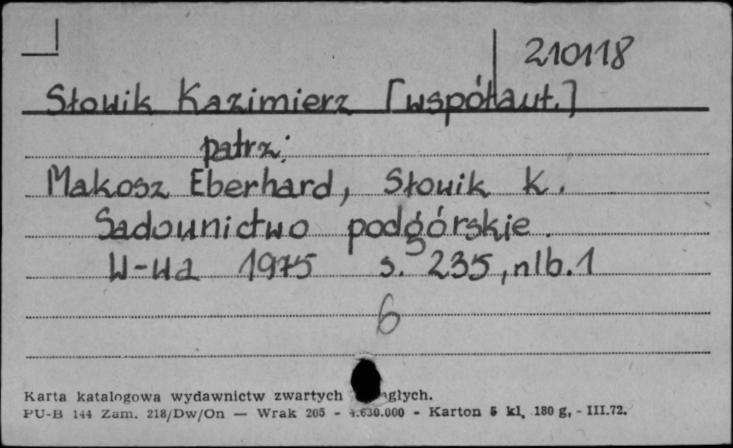 210118
Słowik Kazimierz [współaut.]
patrz:
Makosz Eberhard, Słowik K.
Sadownictwo podgórskie.
W-wa 1975 s. 235, nlb. 1
6
Karta katalogowa wydawnictw zwartych
PU-B 144 Zam. 218/Dw/On — Wrak 205 - 4.630.000 - Karton 5 kl. 180 g, - III.72.